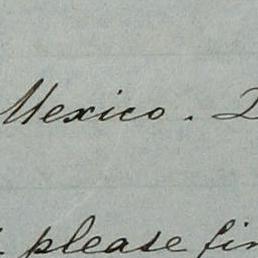 Mexico. 2
please fin